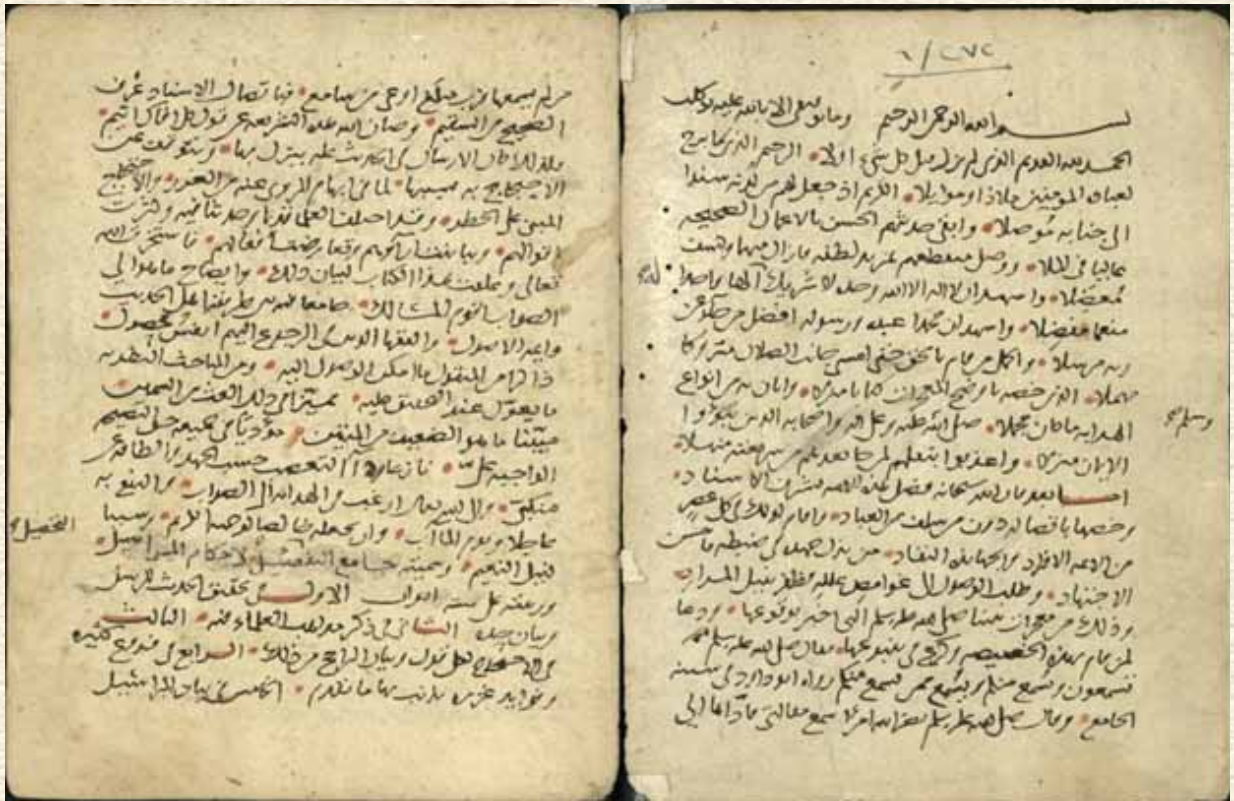 ٢٧٢/٦
بسم الله الرحمن الرحيم وما توفيقي الا بالله عليه توكلت
الحمد لله القديم الذي لم يزل قبل كل شيء اولا الرحيم الذي ما برح
لعباده المؤمنين ملاذا وموئلا الكريم اذ جعل لهم من لدنه سندا
الى جنابه موصلا وابقى صدقهم الحسن بالاعمال الصحيحه
عاليا في الملا ووصل منقطعهم بمزيد لطفه فازال مبهما وكشف
معضلا واشهد ان لا اله الا الله وحده لا شريك الها واحدا
منعما مفضلا واشهد ان محمدا عبده ورسوله افضل من حكى عن
ربه مرسلا واكمل من قام بالحق حتى امسى جانب الضلال متروكا
مهملا الذي خصه باوضح المعجزات كتابا منزلا وابان به من انواع
الهدايه ما كان مجملا صلى الله عليه وعلى اله واصحابه الذين تبوؤا
الايمان منزلا واعذبوا بنقلهم لمن جا بعدهم من شريعته منهلا
اما بعد فان الله سبحانه فضل هذه الامه بشرف الاسناد
وخصها باتصاله دون من سلف من العباد واقام لذلك في كل عصر
من الائمه الافراد والجهابذه النقاد من بذل جهده في ضبطه واحسن
الاجتهاد وطلب الوصول الى غوامض علله فظفر بنيل المراد
وذلك من معجزات نبينا صلى الله عليه وسلم التي اخبر بوقوعها ودعا
لمن قام بهذه الخصيصه وكرع في ينبوعها فقال صلى الله عليه وسلم
تسمعون ويسمع منكم ويسمع ممن يسمع منكم رواه ابو داود في سننه
الجامع وقال صلى الله عليه وسلم نضر الله امرا سمع مقالتي فاداها الى
وسلم
من لم يسمعها فرب مبلغ اوعى من سامع فباتصال الاسناد عرف
الصحيح من السقيم وصان الله هذه الشريعه عن قول كل افاك اثيم
فلذلك كان الارسال في الحديث عله يترك بها ويتوقف عن
الاحتجاج به بسببها لما في ابهام المروي عنه من الغرر والاحتجاج
المبني على الخطر وقد اختلف العلما قديما وحديثا فيه وكثرت
اقوالهم وتباينت آراؤهم وتعارضت افعالهم فاستخرت الله
تعالى وعلقت هذا الكتاب لبيان ذلك وايضاح ما هو الى
الصواب اقوم المسالك جامعا فيه بين طريقتي اهل الحديث
وايمه الاصول والفقها الذين في الرجوع اليهم انفس محصول
ذاكرا من المنقول ما امكن الوصول اليه ومن المباحث النظريه
ما يعول عند التحقيق عليه مميزا في ذلك الغث من السمين
مبينا ما هو الضعيف من المتين مؤديا في جميعه حق النصيحه
الواجبه علي نازعا رداء التعصب حسب الجهد والطاقه عن
منكبي والى الله تعالى ارغب في الهدايه الى الصواب والنفع به
عاجلا ويوم المآب وان يجعله خالصا لوجهه الكريم وسببا
لنيل النعيم وسميته جامع التفصيل لاحكام المراسيل
التحصيل
ورتبته على سته ابواب الاول في تحقيق الحديث المرسل
وبيان حده الثاني في ذكر مذاهب العلماء فيه الثالث
في الاحتجاج لكل قول وبيان الراجح من ذلك الرابع في فروع كثيره
وفوايد عزيزه يذنب بها ما تقدم الخامس في بيان المراسيل